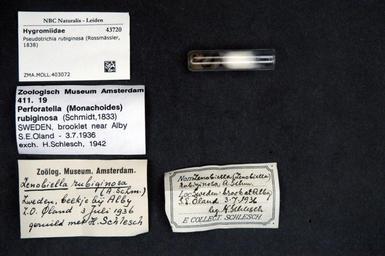 NBC Naturalis - Leiden
Hygromiidae 43720
Pseudotrichia rubiginosa (Rossmässler, 1838)
ZMA.MOLL.403072
Zoologisch Museum Amsterdam
411. 19
Perforatella (Monachoides)
rubiginosa (Schmidt,1833)
SWEDEN, brooklet near Alby
S.E.Oland - 3.7.1936
exch. H.Schlesch, 1942
Zoölog. Museum. Amsterdam.
Zenobiella rubiginosa
(A. Schm.)
Zweden, beekje bij Alby
Z.O. Öland 3 Juli 1936
geruild met H. Schlesch
Nom Zenobiella (Zenobiella)
rubiginosa A. Schm.
Loc Sweden: brook at Alby
S.E. Öland. 3-7-1936
leg. H. Schlesch
E COLLECT. SCHLESCH.